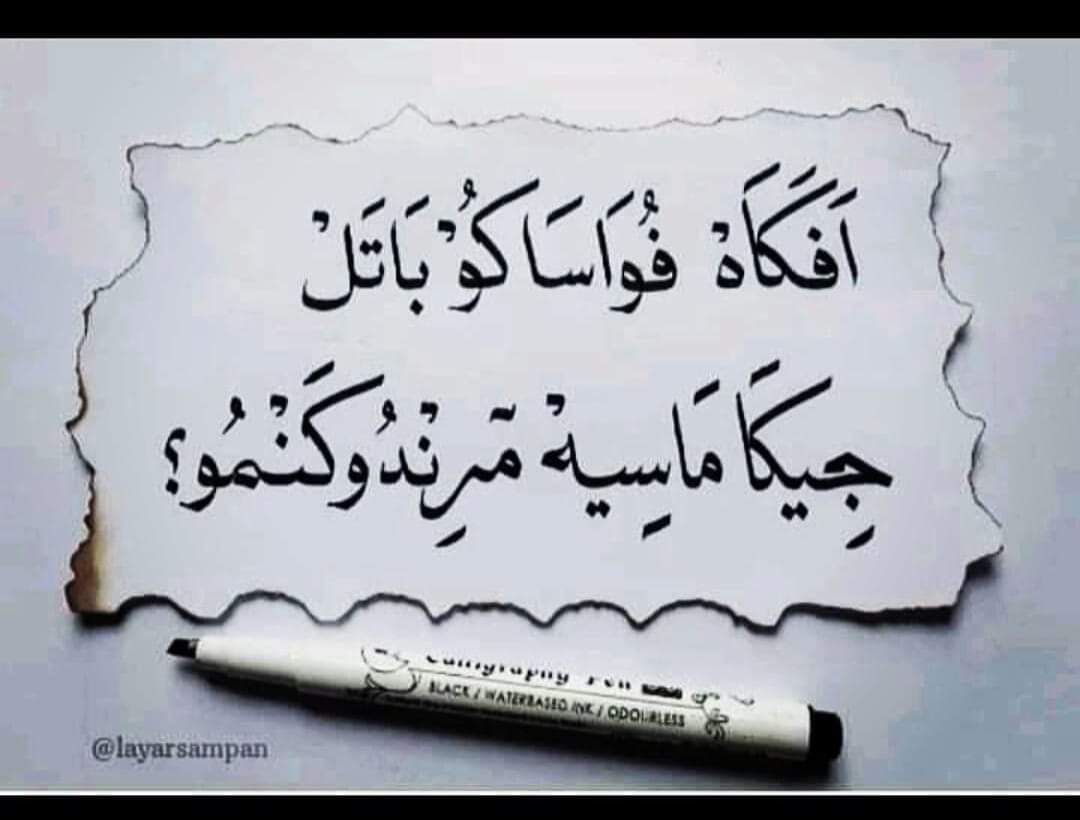 اَفَكَاَهْ فُوَاسَاكُوْ بَاتَلْ
جِيكَا مَاسِيهْ مۤرِنْدُوكَنْمُو؟
Calligraphy Pen
BLACK / WATERBASED INK / ODOURLESS
@layarsampan